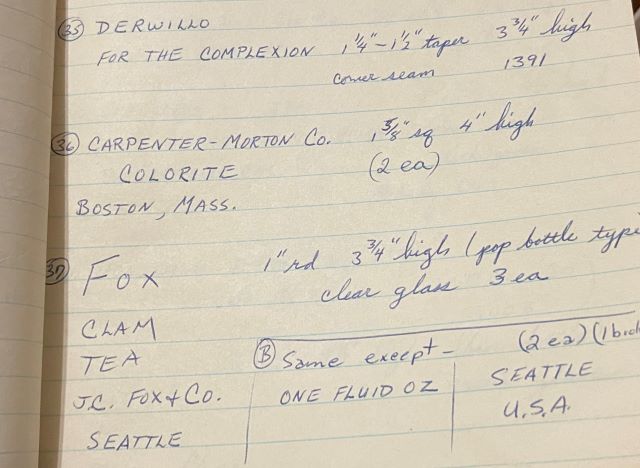 35 DERWILLO
FOR THE COMPLEXION 1 1/4" - 1 1/2" taper 3 3/4" high
corner seam 1391
36 CARPENTER-MORTON Co. 1 5/8" sq 4" high
COLORITE (2 ea)
BOSTON, MASS.
37 FOX 1" rd 3 3/4" high (pop bottle type
clear glass 3 ea
CLAM
TEA
J.C. FOX & CO.
SEATTLE
B Same except - (2 ea) (1
ONE FLUID OZ SEATTLE
U.S.A.